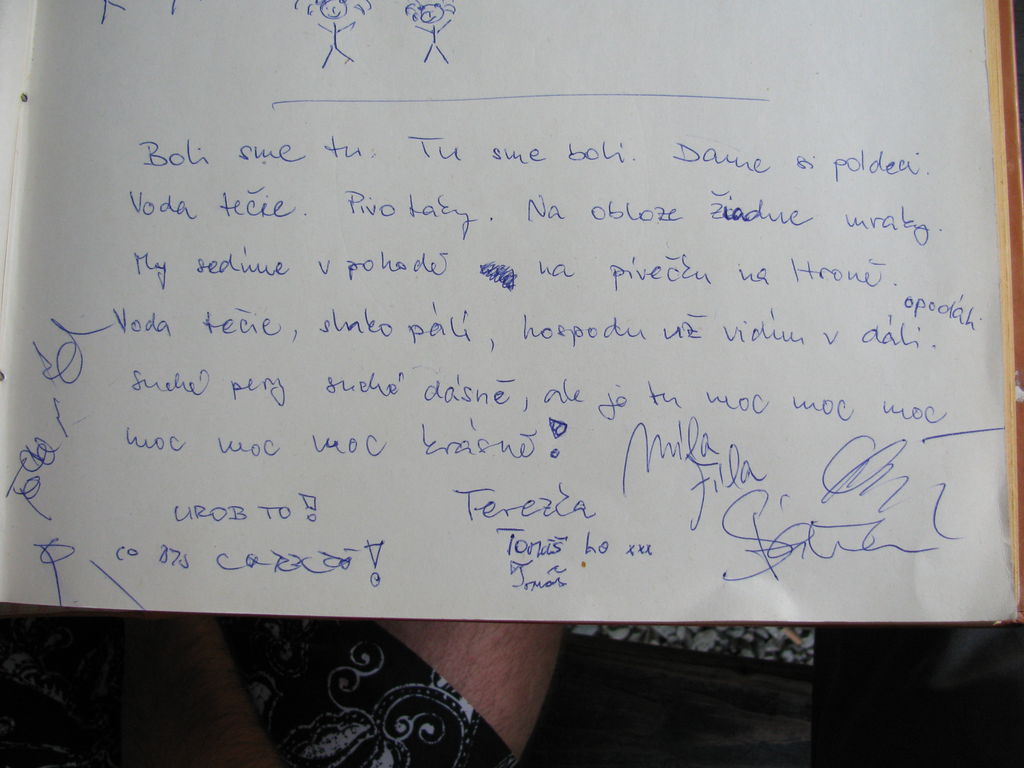 Boli sme tu. Tu sme boli. Dáme si poldeci.
Voda tečie. Pivo taky. Na obloze žiadne mraky.
My sedíme v pohodě na pivečku na Hroně.
opodáli
Voda tečie, slnko pálí, hospodu už vidím v dáli.
Suché pery suché dásně, ale je tu moc moc moc
moc moc moc krásně!
Míla
Fíla
UROB TO! Terezka
co bys Tomáš ho xxx
Tomáš